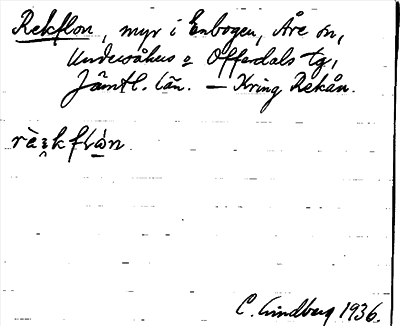 Rekflon, myr i Enbogen, Åre sn,
Undersåkers o Offerdals tg,
Jämtl. län. — Kring Rekån.
ràə̯kflὼn
C. Lindberg 1936.